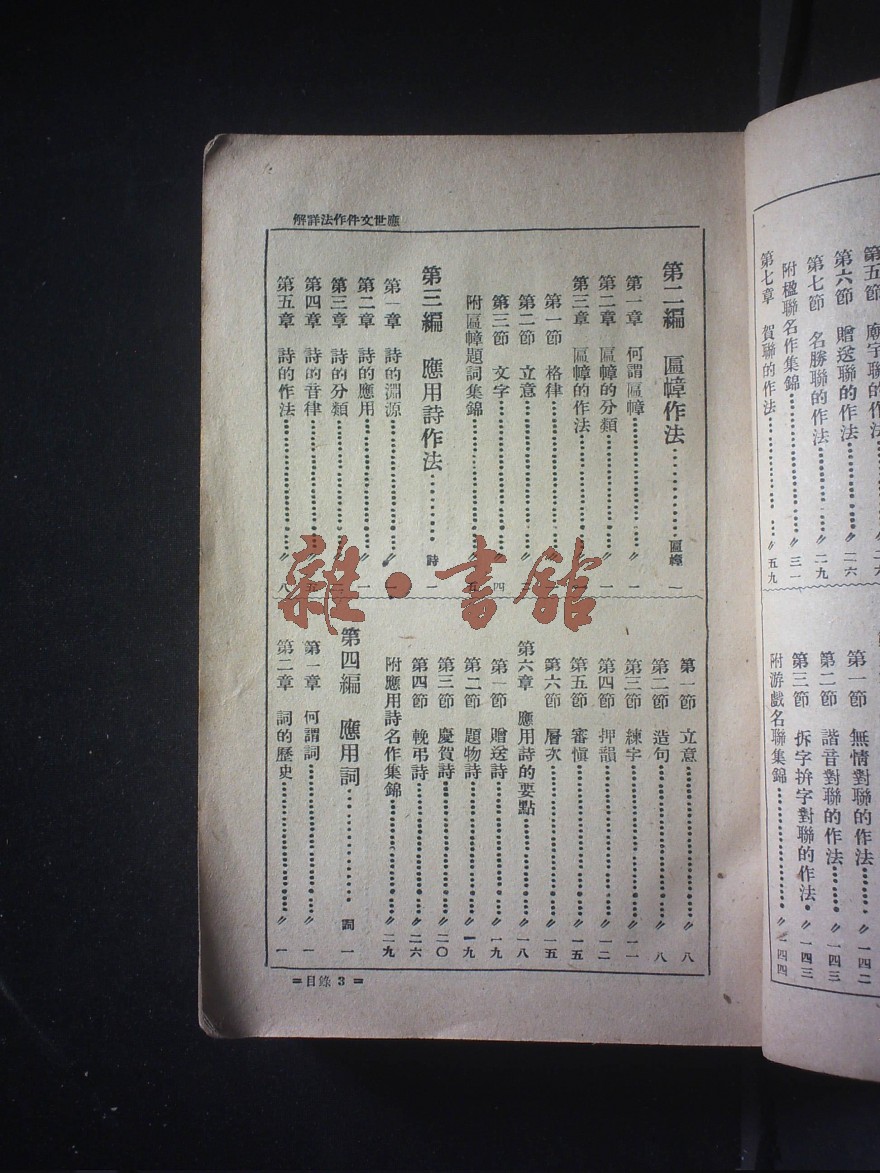 應世文件作法詳解
第二編　匾幛作法…………匾幛　一
第一章　何謂匾幛…………〃　一
第二章　匾幛的分類…………〃　一
第三章　匾幛的作法…………〃
第一節　格律…………〃
第二節　立意…………〃
第三節　文字…………〃　四
附匾幛題詞集錦…………〃　五
第三編　應用詩作法…………詩　一
第一章　詩的淵源…………〃　一
第二章　詩的應用…………〃　一
第三章　詩的分類…………〃
第四章　詩的音律…………〃
第五章　詩的作法…………〃　八
第一節　立意…………〃　八
第二節　造句…………〃　八
第三節　練字…………〃　一一
第四節　押韻…………〃　一二
第五節　審愼…………〃　一五
第六節　層次…………〃　一五
第六章　應用詩的要點…………〃　一八
第一節　贈送詩…………〃　一九
第二節　題物詩…………〃　一九
第三節　慶賀詩…………〃　二〇
第四節　輓弔詩…………〃　二六
附應用詩名作集錦…………〃　二九
第四編　應用詞…………詞　一
第一章　何謂詞…………〃　一
第二章　詞的歷史…………〃　一
=目錄 3 =
第五節　廟宇聯的作法
第六節　贈送聯的作法…………〃　二六
第七節　名勝聯的作法…………〃　二九
附楹聯名作集錦…………〃　三一
第七章　賀聯的作法…………〃　五九
第一節　無情對聯的作法…………〃　一四二
第二節　諧音對聯的作法…………〃　一四三
第三節　拆字拚字對聯的作法…〃　一四三
附游戲名聯集錦…………〃　一四四
雜·書館